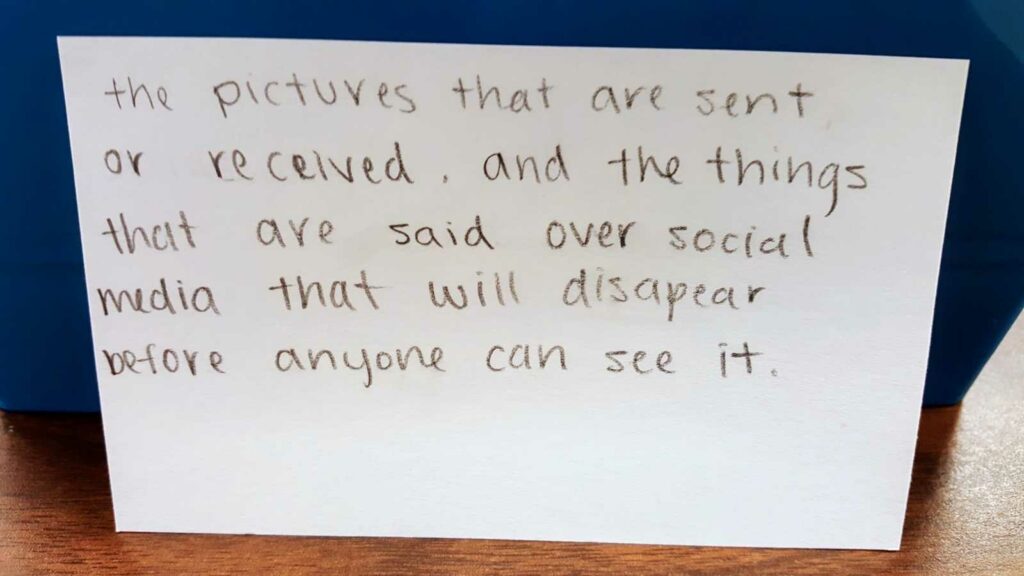 the pictures that are sent
or received. and the things
that are said over social
media that will disapear
before anyone can see it.